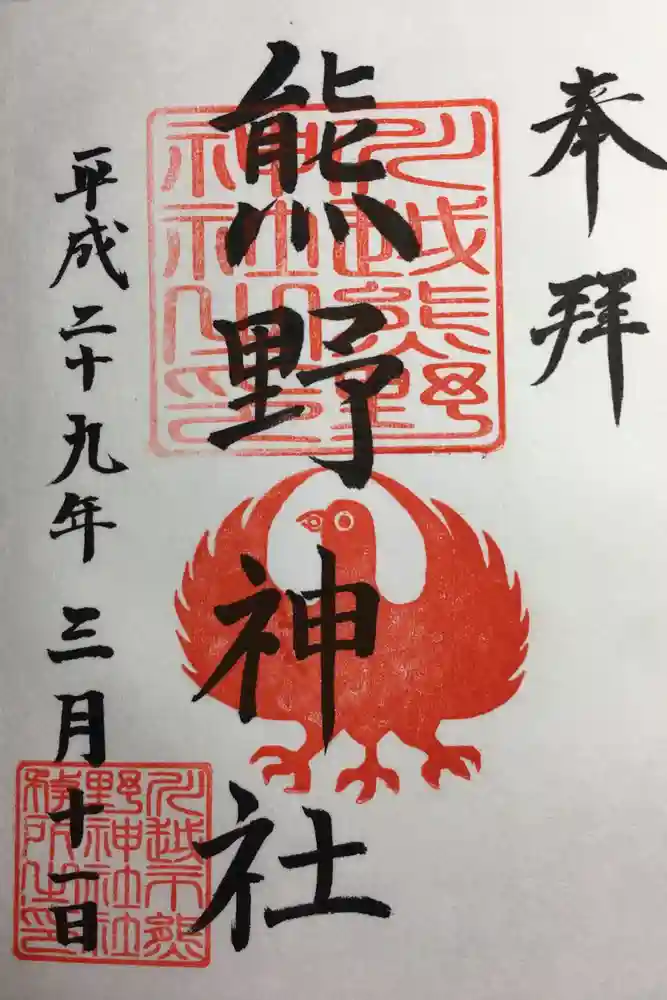 奉拝
熊野神社
川越熊野
神社之印
平成二十九年三月十一日
川越市熊
野神社社
務所之印